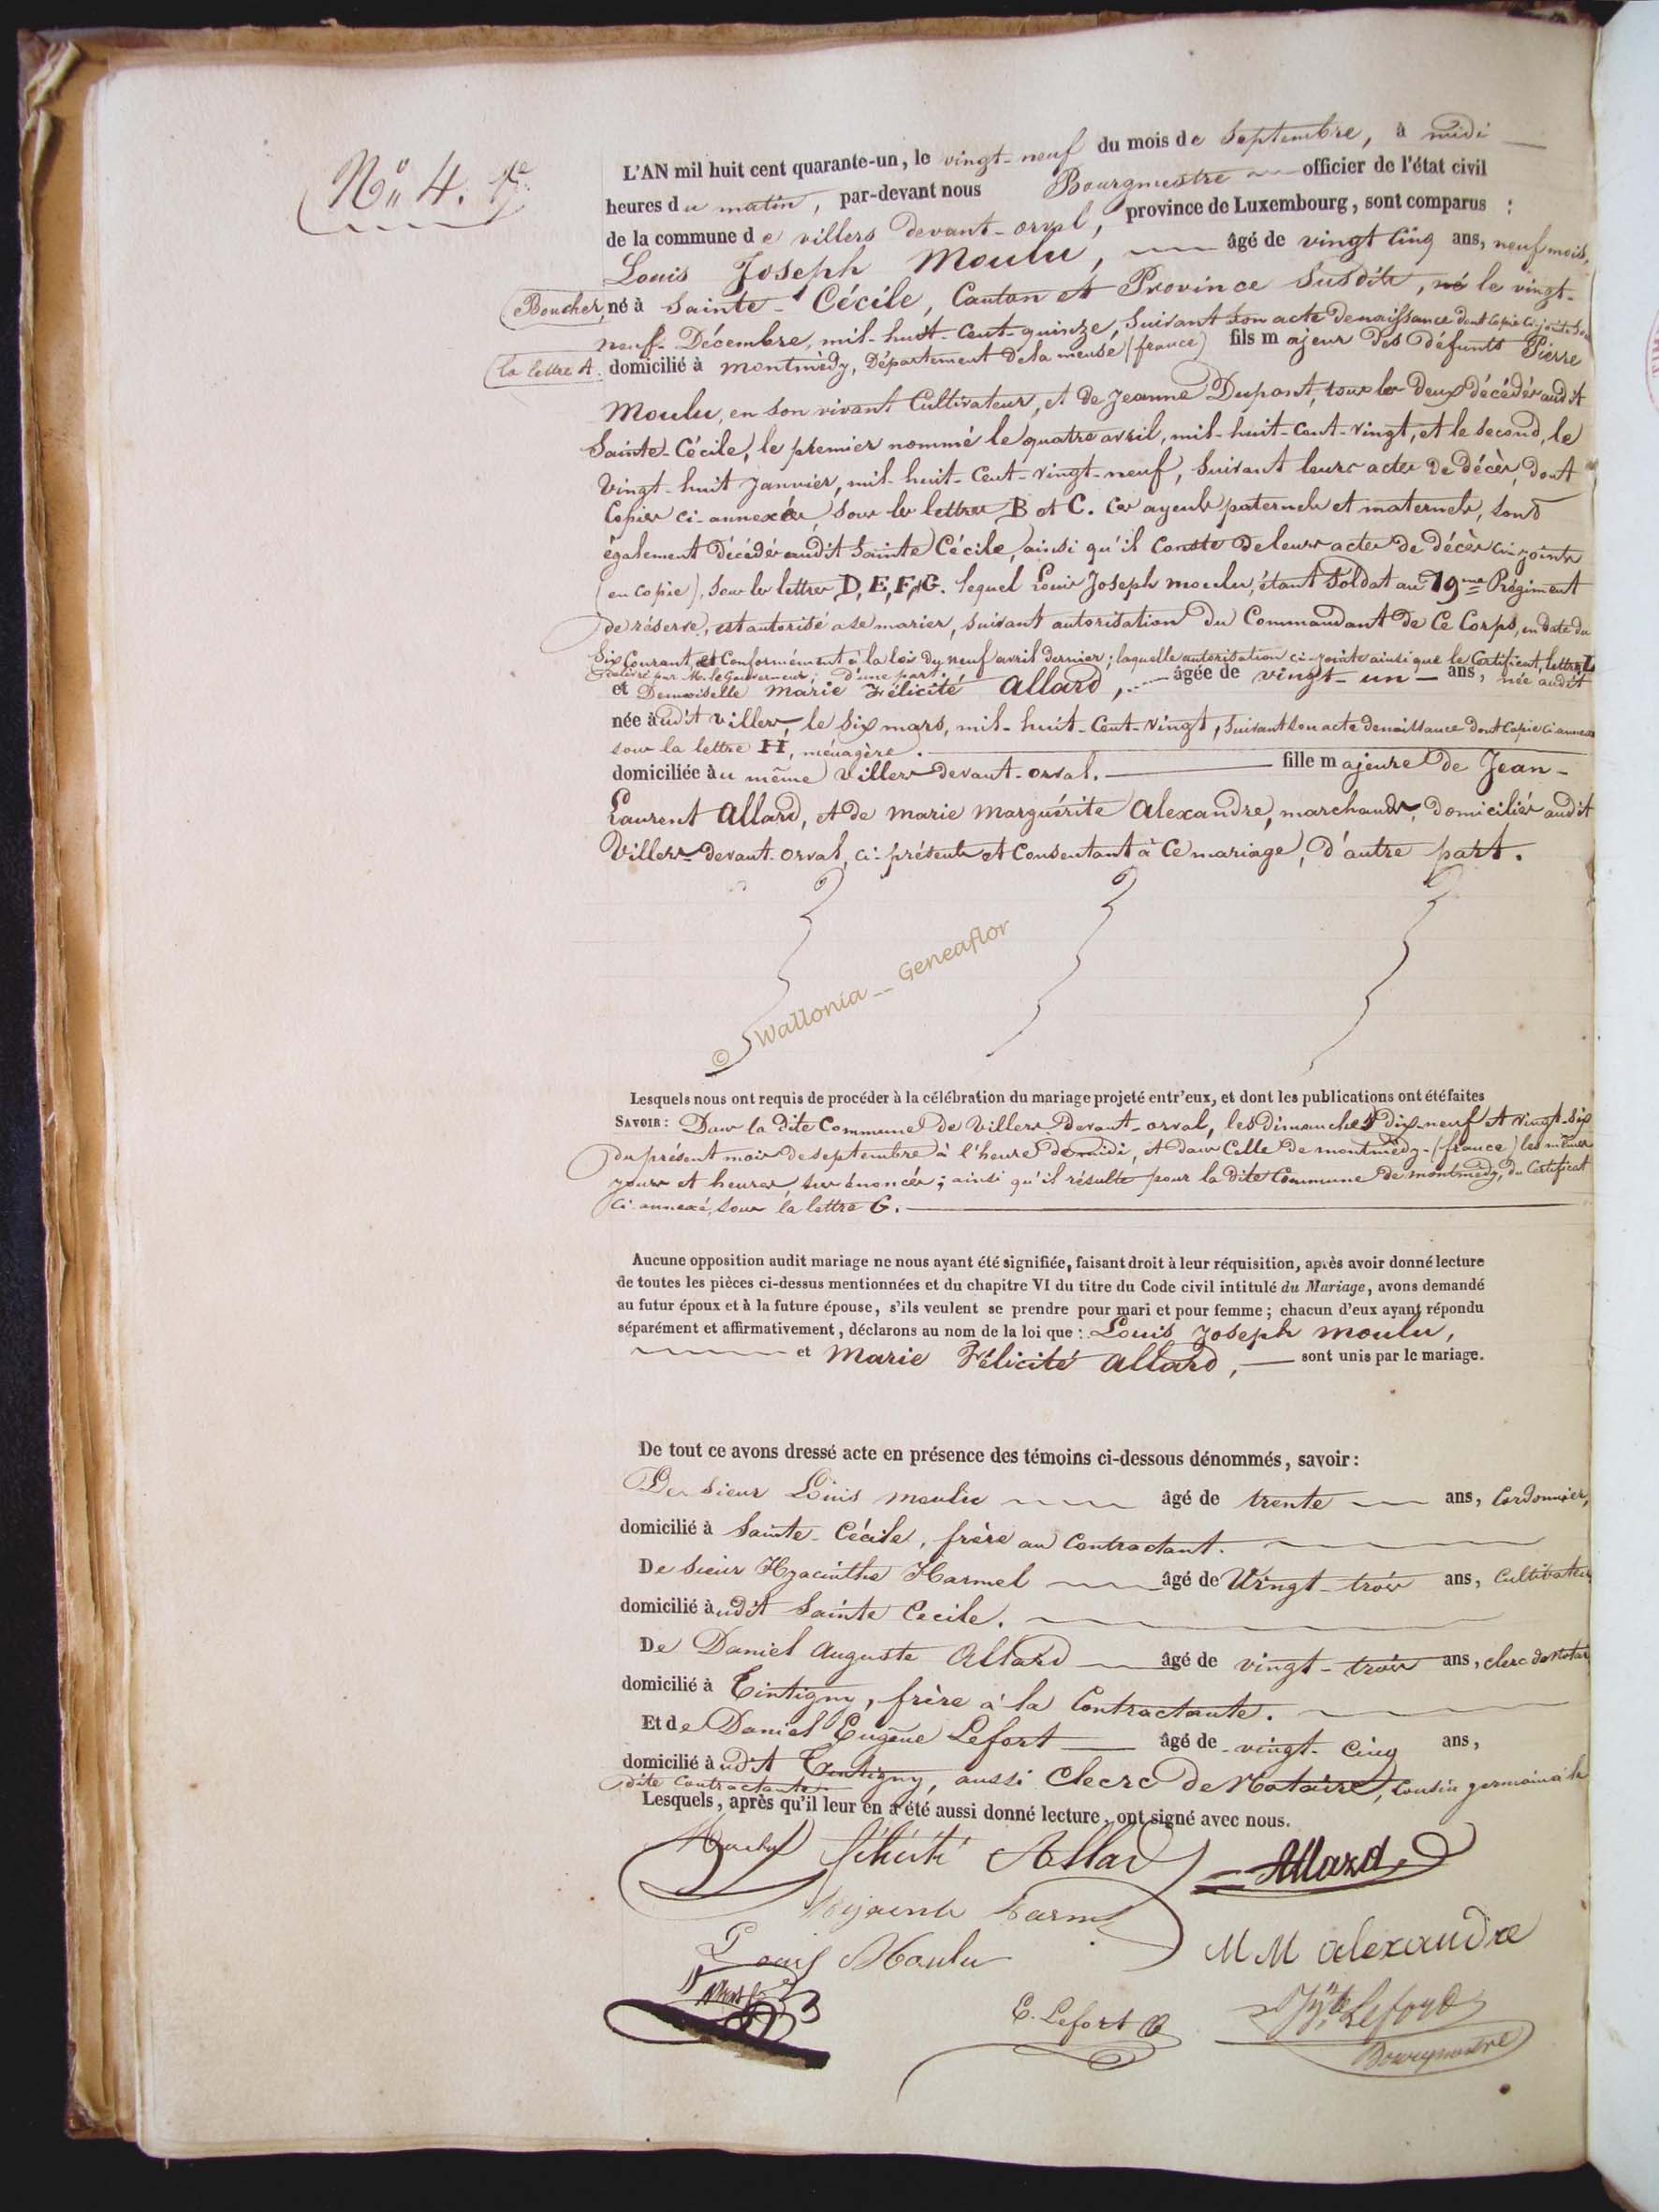 N° 4.
L'AN mil huit cent quarante-un, le vingt-neuf du mois de Septembre, à midi
heures du matin, par-devant nous Bourgmestre officier de l'état civil
de la commune de villers devant-orval, province de Luxembourg, sont comparus :
Louis Joseph Moulu, âgé de vingt cinq ans, neuf mois,
Boucher, né à Sainte-Cécile, Canton et Province Susdite, né le vingt-
neuf Décembre, mil-huit-Cent-quinze, Suivant Son acte de naissance dont Copie Ci-jointe Sous
la lettre A. domicilié à montmèdy, Département de la meuse (france) fils majeur des défunts Pierre
Moulu, en son vivant Cultivateur, et de Jeanne Dupont, tous les deux décédés audit
Sainte-Cécile, le premier nommé le quatre avril, mil-huit-Cent-vingt, et le second, le
Vingt-huit Janvier, mil-huit-Cent-vingt-neuf, Suivant leurs actes de décès, dont
Copies ci-annexées, sous les lettres B et C. Ces ayeuls paternels et maternels, sont
également décédés audit Sainte Cécile, ainsi qu'il Conste de leurs actes de décès ci-joints
(en Copie), Sous les lettres D, E, F, G. lequel Louis Joseph moulu, étant Soldat au 19me Régiment
de réserve, est autorisé a se marier, suivant autorisation du Commandant de Ce Corps, en date du
Six Courant, et Conformément à la loi du neuf avril dernier; laquelle autorisation ci-jointe ainsi que le Certificat, lettre
délivré par M. le Gouverneur; d'une part.
et Demoiselle Marie Félicité Allard, âgée de vingt-un ans, née audit
née audit villers, le Six mars, mil-huit-Cent-vingt, Suivant Son acte de naissance dont Copie Ci-annexée
sous la lettre H, ménagère.
domiciliée au même Villers-devant-orval. fille majeure de Jean-
Laurent Allard, et de Marie Marguérite Alexandre, marchands, domiciliés audit
Villers-devant-orval, ci-présents et Consentant à Ce mariage, d'autre part.
© Wallonia__Geneaflor
Lesquels nous ont requis de procéder à la célébration du mariage projeté entr'eux, et dont les publications ont été faites
SAVOIR : Dans la dite Commune de Villers devant-orval, les dimanches dix-neuf et vingt-six
du présent mois de septembre à l'heure de midi, et dans Celle de montmèdy-(france) les mêmes
jours et heures, sus énoncés; ainsi qu'il résulte pour la dite Commune de montmèdy, du Certificat
ci-annexé, sous la lettre G.
Aucune opposition audit mariage ne nous ayant été signifiée, faisant droit à leur réquisition, après avoir donné lecture
de toutes les pièces ci-dessus mentionnées et du chapitre VI du titre du Code civil intitulé du Mariage, avons demandé
au futur époux et à la future épouse, s'ils veulent se prendre pour mari et pour femme ; chacun d'eux ayant répondu
séparément et affirmativement, déclarons au nom de la loi que : Louis Joseph Moulu,
et Marie Félicité Allard, sont unis par le mariage.
De tout ce avons dressé acte en présence des témoins ci-dessous dénommés, savoir :
De Sieur Louis moulu âgé de trente ans, Cordonnier,
domicilié à Sainte-Cécile, frère au Contractant.
De Sieur Hyacinthe Harmel âgé de Vingt-trois ans, Cultivateur
domicilié audit Sainte Cecile.
De Daniel Auguste Allard âgé de vingt-trois ans, clerc de Notaire
domicilié à Tintigny, frère à la Contractante.
Et de Daniel Eugène Lefort âgé de vingt-Cinq ans,
domicilié audit Tintigny, aussi Clerc de Notaire, Cousin germain à la
dite Contractante.
Lesquels, après qu'il leur en a été aussi donné lecture, ont signé avec nous.
Moulu félicité Allard Allard
Louis Moulu MM alexandre
E. Lefort Lefort
Bourgmestre